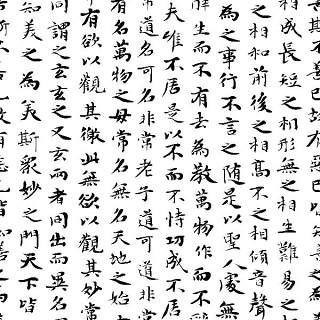 相成長短之相形無之相生難易之
之相和前後之相高不之相傾音聲
為之事行不言之随是以聖人處無
生而不有去為教萬物作而不
夫唯不居是以不而不恃功成不居
名可名非常老子道可道非常
有名萬物之母常名無名天地之始
有欲以觀其徼此無欲以觀其妙常
同謂之玄玄之又玄兩者同出而異名
知美之為美斯眾妙之門天下皆